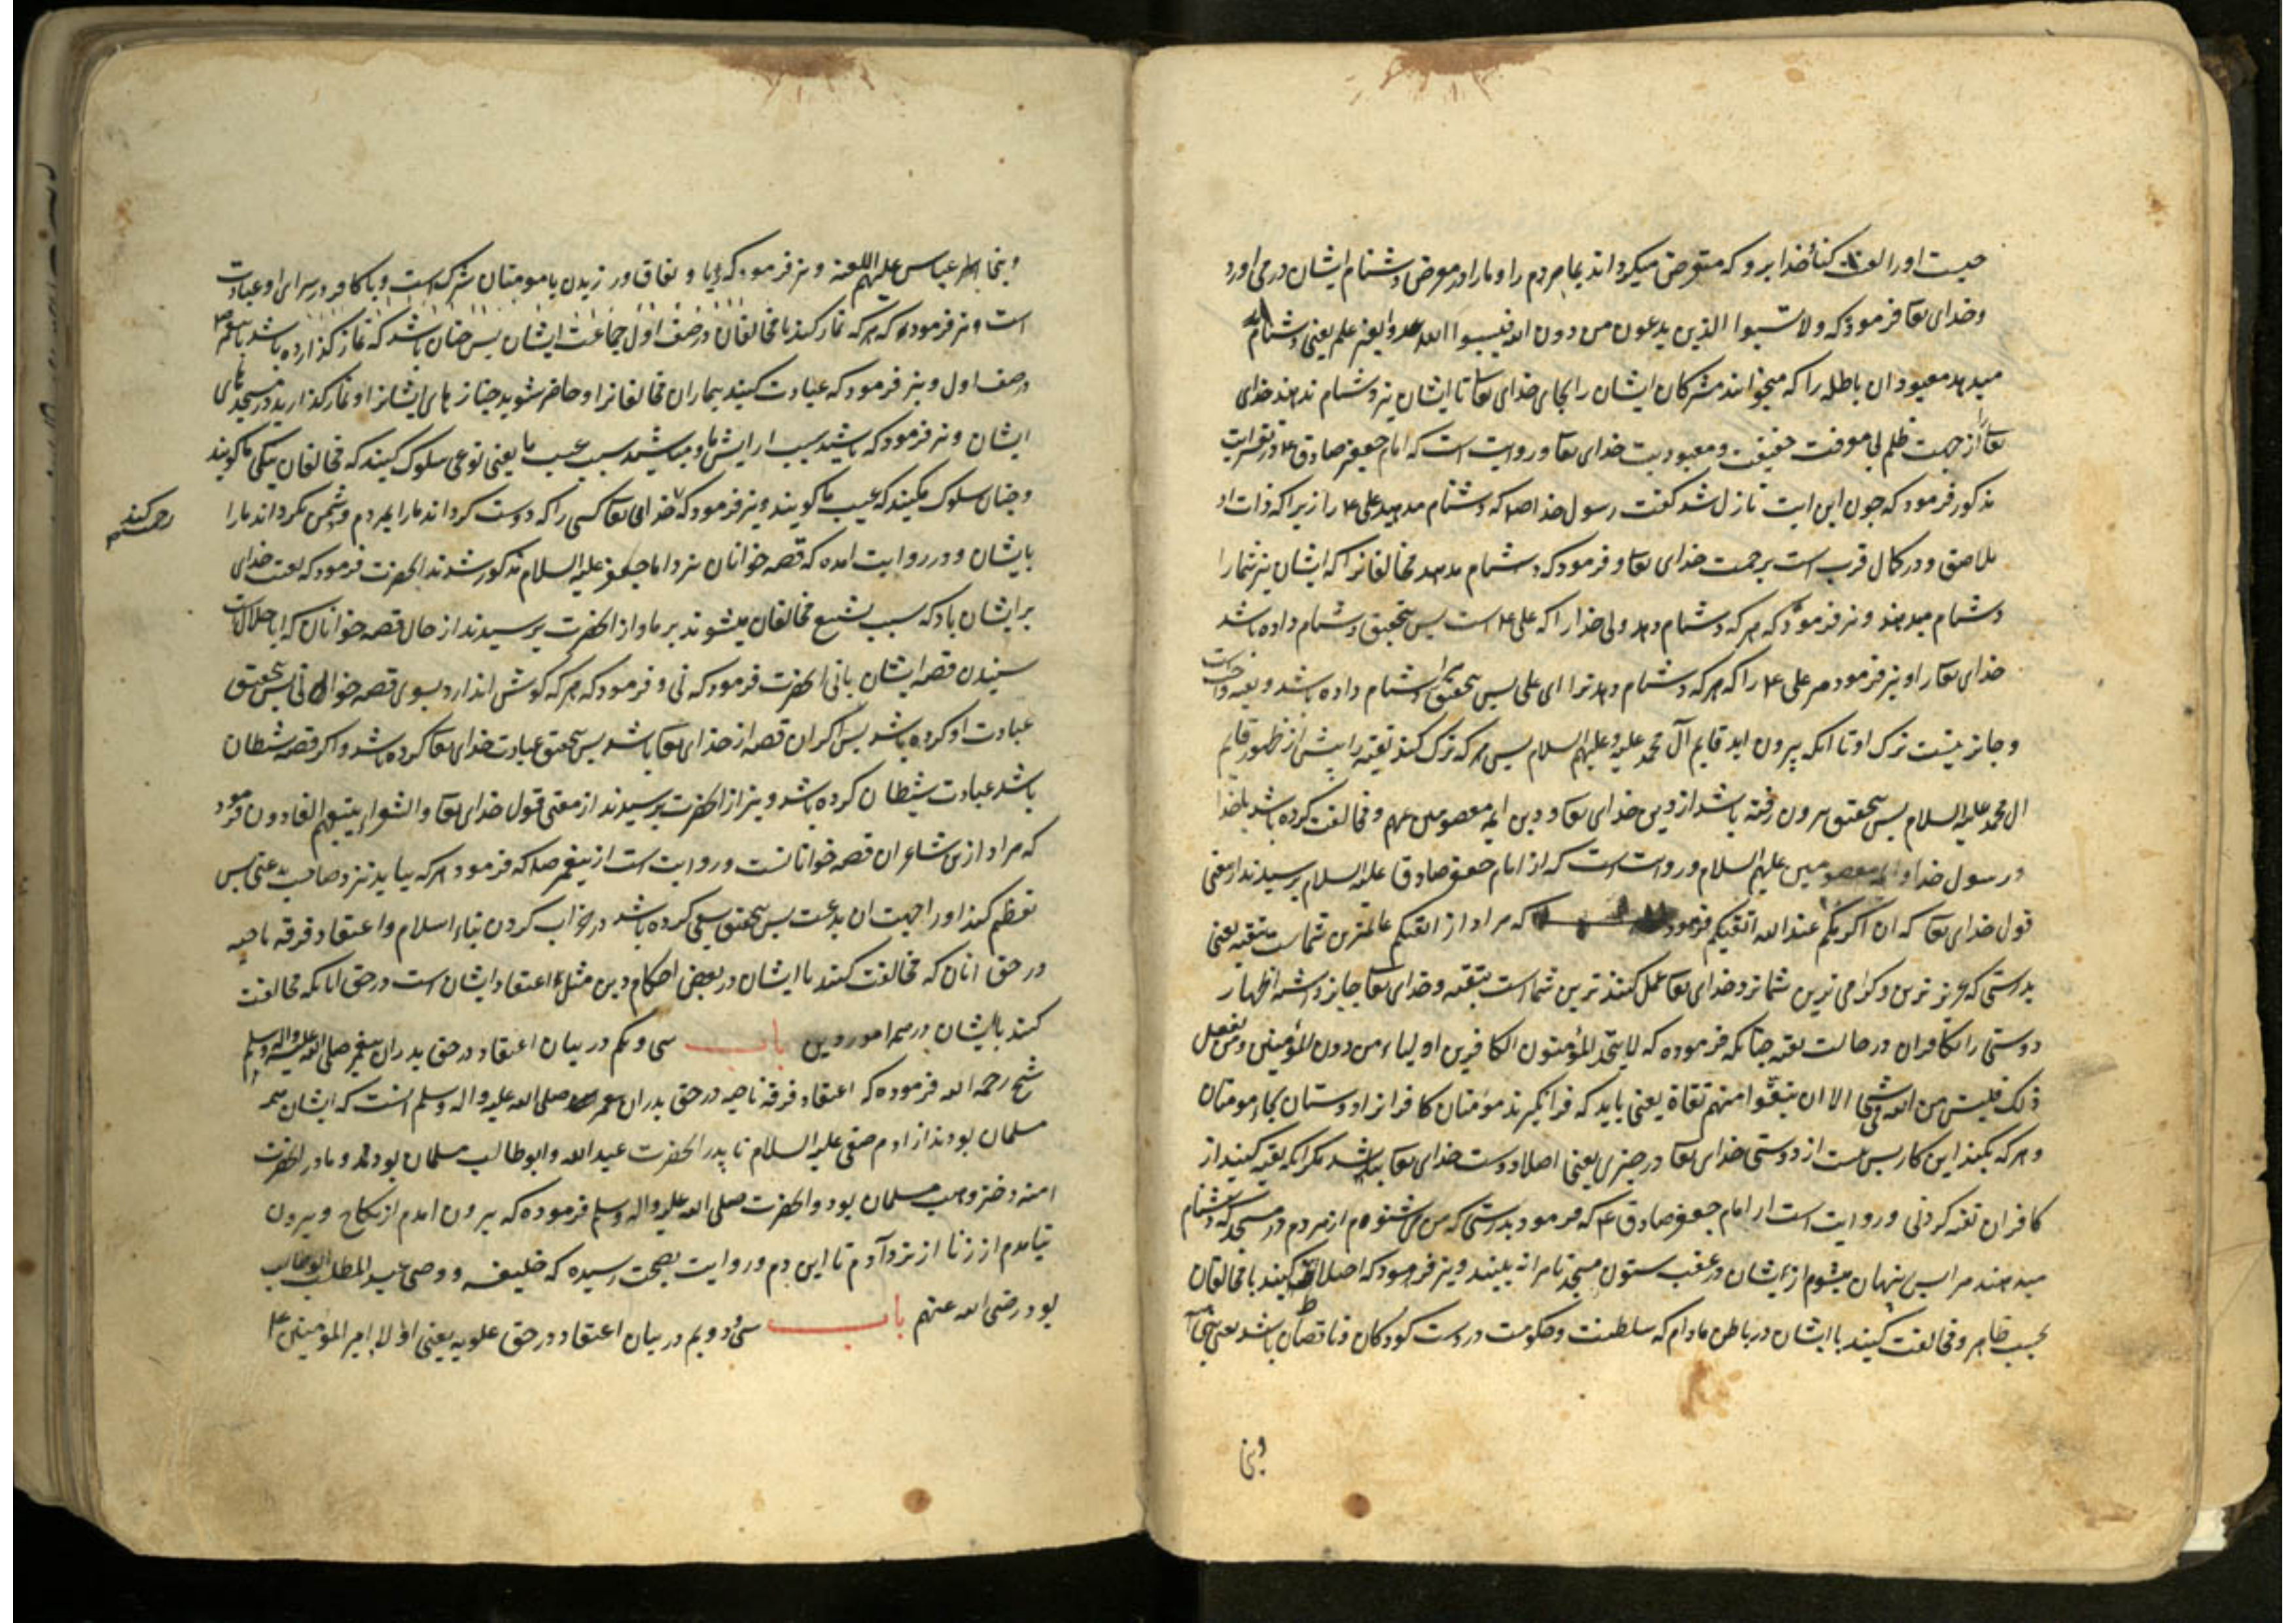 چیست او را لعنت کناد خدا برو که متعرض میکرداند بما مردم را و ما را در معرض دشنام ایشان در می اورد
و خدای تعا فرموده که ولا تسبوا الذین یدعون من دون الله فیسبوا الله عدوا بغیر علم یعنی دشنام
میدهد معبودان باطله را که میخوانند مشرکان ایشان را بجای خدای تعا تا ایشان نیز دشنام ندهند خدای
تعا از جهت ظلم بی موفت حقیقت و معبودیت خدای تعا و روایت است که امام جعفر صادق ع در تفسیر ایت
مذکور فرمود که چون این ایت نازل شد کفت رسول خدا صم که دشنام مدهید علی ع را زیرا که ذات او
ملاصق و در کمال قرب است برحمت خدای تعا و فرمود که دشنام مدهد مخالفانرا که ایشان نیز شما را
دشنام میدهند و نیز فرموده که هر که دشنام دهد ولی خدا را که علی ع است پس بتحقیق دشنام داده باشد
خدای تعا را و نیز فرمود مر علی ع را که هر که دشنام دهد ترا ای علی پس بتحقیق مرا دشنام داده باشد و تقیه واجب است
و جایز نیست ترک او تا انکه بیرون اید قایم آل محمد علیه و علیهم السلام پس هر که ترک کند تقیه را پیش از ظهور قایم
ال محمد علیه السلام پس بتحقیق بیرون رفته باشد از دین خدای تعا و دین ایمه معصومین عهم و مخالفت کرده باشد با خدا
و رسول خدا و ایمه معصومین علیهم السلام و روایت است که از امام جعفر صادق علیه السلام پرسیدند از معنی
قول خدای تعا که ان اکرمکم عند الله اتقیکم فرمود که مراد از اتقیکم عالمترین شماست بتقیه یعنی
بدرستی که عزیز ترین و کرامی ترین شما نزد خدای تعا عمل کننده ترین شما است بتقیه و خدای تعا جایز داشته اظهار
دوستی را بکافران در حالت تقیه چنانکه فرموده که لا یتخذ المؤمنون الکافرین اولیاء من دون المؤمنین و من یفعل
ذلک فلیس من الله فی شیء الا ان تتقوا منهم تقاة یعنی باید که فرا نکیرند مؤمنان کافرانرا دوستان بجای مومنان
و هر که بکند این کار پس نیست از دوستی خدای تعا در چیزی یعنی اصلا دوست خدای تعا نباشد مکر انکه تقیه کنید از
کافران تقیه کردنی و روایت است از امام جعفر صادق ع که فرمود بدرستی که من می شنوم از مردم در مسجد که دشنام
میدهند مرا پس پنهان میشوم از ایشان در عقب ستون مسجد تا مرا نه بینند و نیز فرمود که اختلاط کنید با مخالفان
بحسب ظاهر و مخالفت کنید با ایشان در باطن مادام که سلطنت و حکومت در دست کودکان و ناقصان باشد یعنی بنی امیه
و بنی
و بنی عباس علیهم اللعنه و نیز فرمود که ریا و نفاق ورزیدن با مومنان شرک است و با کافر در سرای او عبادت
است و نیز فرموده که هر که نماز کند با مخالفان در صف اول جماعت ایشان پس چنان باشد که نماز کذارده باشد با پیغمبر صم
در صف اول و نیز فرمود که عیادت کنید بیماران مخالفانرا و حاضر شوید جنازه های ایشانرا و نماز کذارید در مسجد های
ایشان و نیز فرمود که باشید سبب ارایش ما و مباشید سبب عیب ما یعنی نوعی سلوک کنید که مخالفان نیکی ما کویند
و چنان سلوک مکنید که عیب ما کویند و نیز فرمود که خدای تعا کسی را که دوست کرداند ما را بمردم و دشمن نکرداند ما را
رحم کند
بایشان و در روایت امده که قصه خوانان نزد امام جعفر علیه السلام مذکور شدند انحضرت فرمود که لعنت خدای
بر ایشان باد که سبب تشنیع مخالفان میشوند بر ما و از انحضرت پرسیدند از حال قصه خوانان که ایا حلال است
شنیدن قصه ایشان یا نی انحضرت فرمود که نی و فرمود که هر که کوش اندازد بسوی قصه خوانی پس بتحقیق
عبادت او کرده باشد پس اکر ان قصه از خدای تعا باشد پس بتحقیق عبادت خدای تعا کرده باشد و اکر قصه شیطان
باشد عبادت شیطان کرده باشد و نیز از انحضرت پرسیدند از معنی قول خدای تعا والشعراء یتبعهم الغاوون فرمود
که مراد ازین شاعران قصه خوانانست و روایت است از پیغمبر صم که فرمود هر که بیاید نزد صاحب بدعتی پس
تعظیم کند او را بجهت ان بدعت پس بتحقیق سعی کرده باشد در خراب کردن بناء اسلام و اعتقاد فرقه ناجیه
در حق انان که مخالفت کنند با ایشان در بعضی احکام دین مثل اعتقاد ایشان است در حق انانکه مخالفت
کنند با ایشان در همه امور دین باب سی و یکم در بیان اعتقاد در حق پدران پیغمبر صلی الله علیه واله وسلم
شیخ رحمه الله فرموده که اعتقاد فرقه ناجیه در حق پدران پیغمبر صلی الله علیه واله وسلم انست که ایشان همه
مسلمان بودند از ادم صفی علیه السلام تا پدر انحضرت عبد الله و ابو طالب مسلمان بود و مادر انحضرت
امنه دختر وهب مسلمان بود و انحضرت صلی الله علیه واله وسلم فرموده که بیرون امدم از نکاح و بیرون
نیامدم از زنا از نزد آدم تا این دم و روایت بصحت رسیده که خلیفه و وصی عبد المطلب ابو طالب
بود رضی الله عنهم باب سی و دویم در بیان اعتقاد در حق علویه یعنی اولاد امیر المؤمنین ع